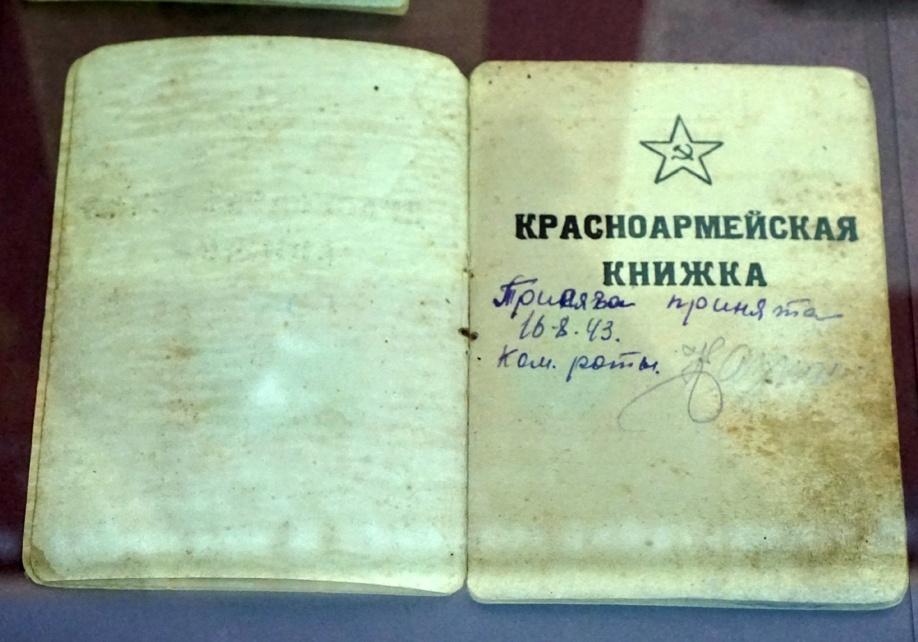 КРАСНОАРМЕЙСКАЯ
КНИЖКА
Присяга принята
16-8-43.
Ком. роты.